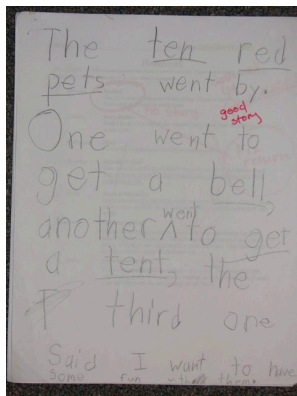 The ten red
pets went by.
good
story
One went to
get a bell,
went
another ^ to get
a tent, the
third one
Said I want to have
some fun them.